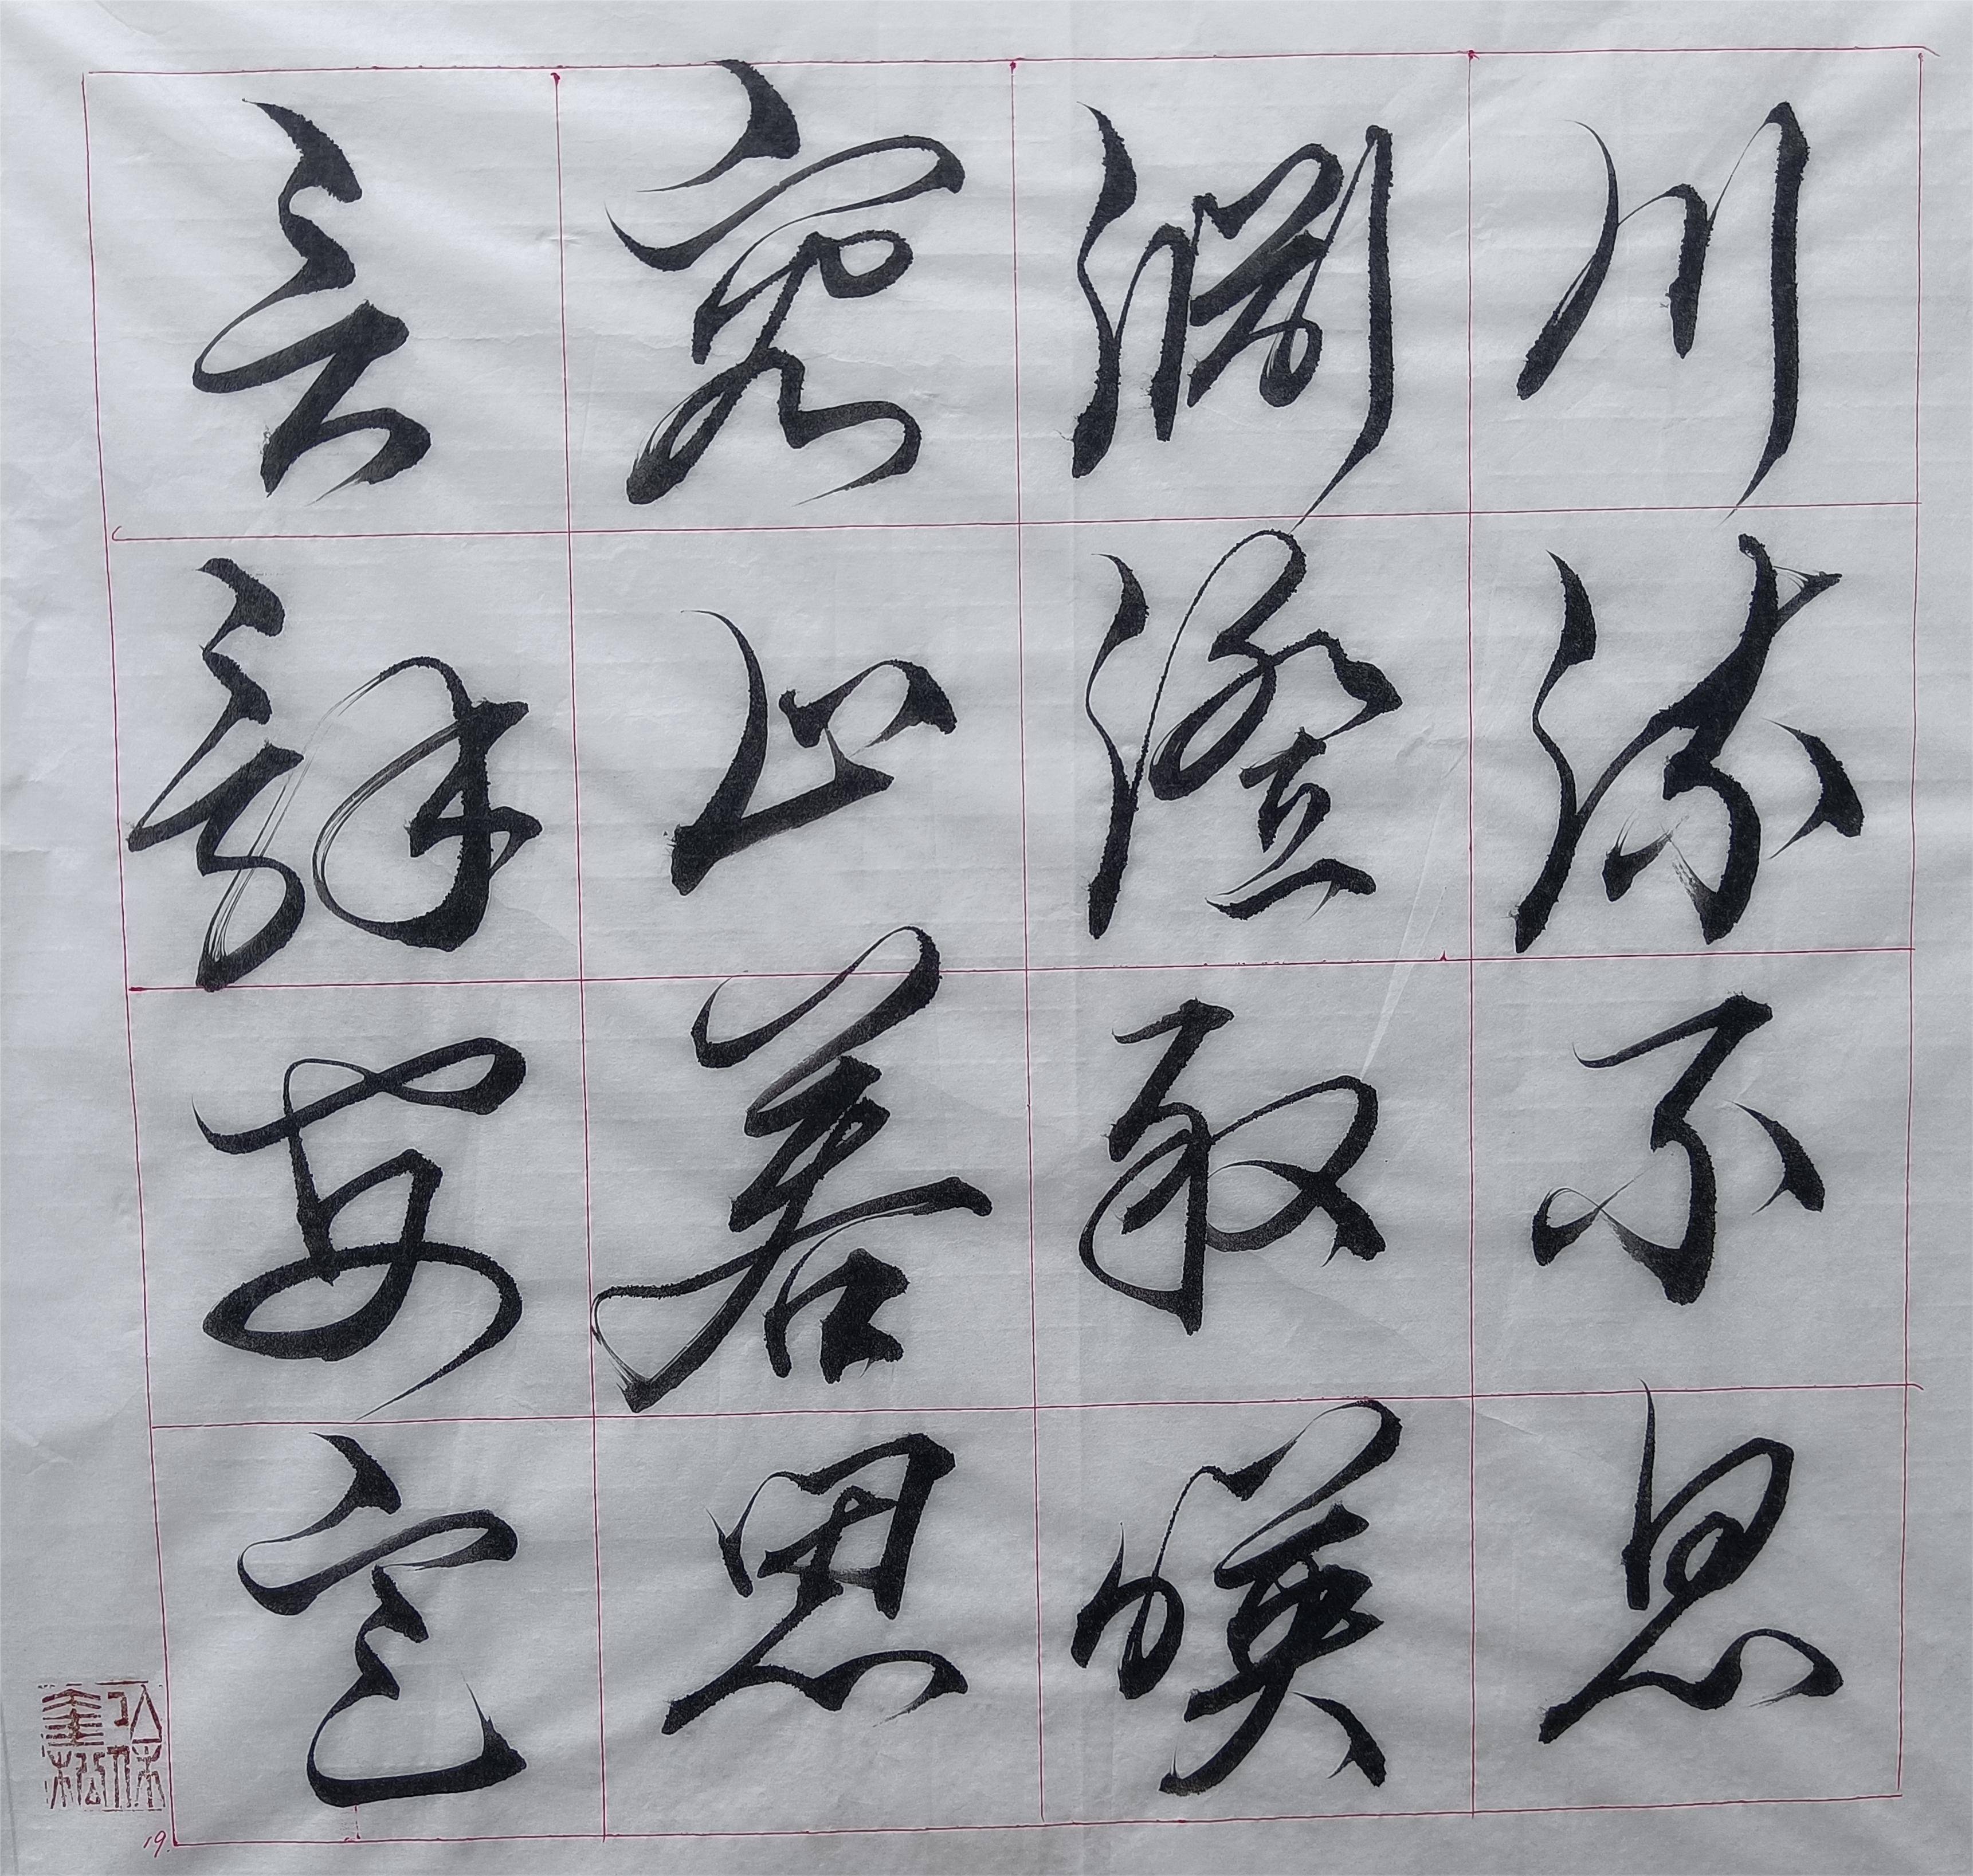 川流不息
淵澄取暎
容止若思
言辭安定
19.